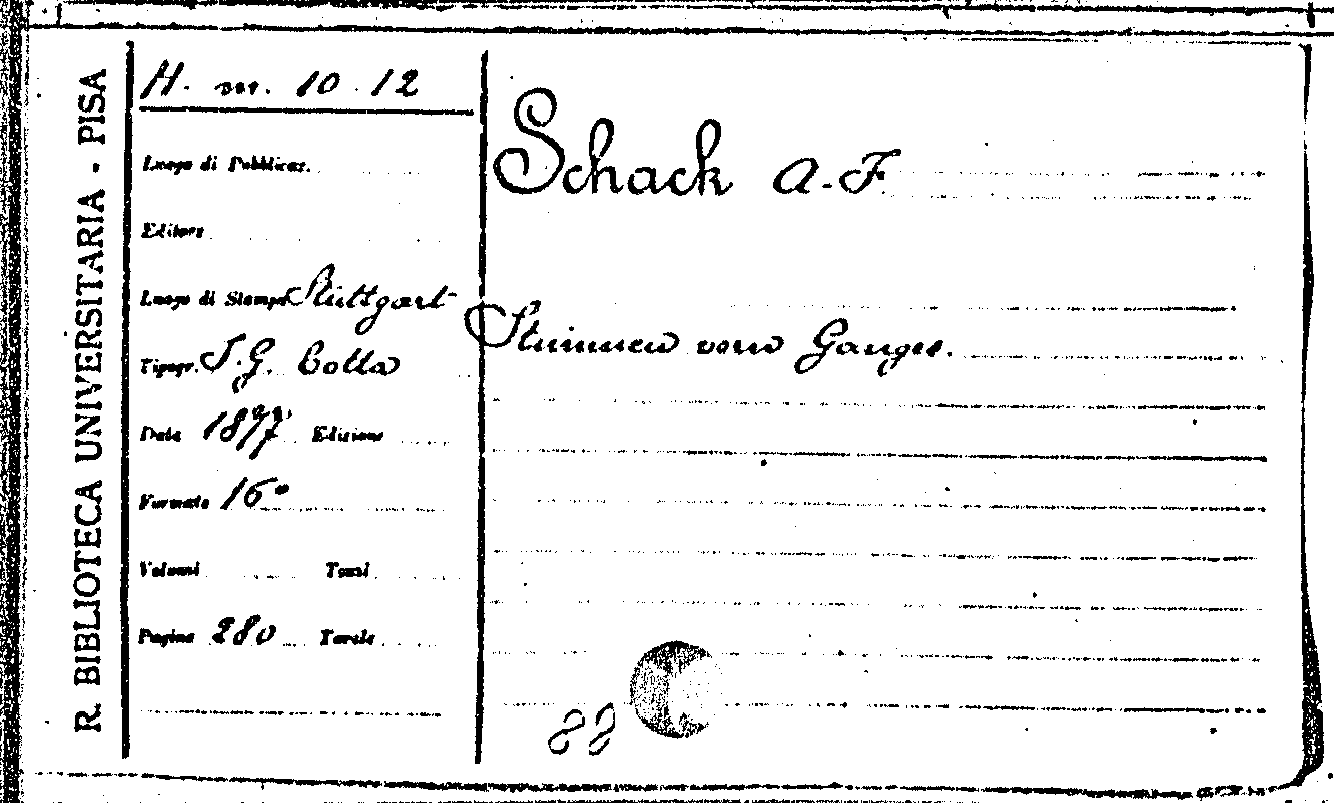 R. BIBLIOTECA UNIVERSITARIA - PISA
H. m. 10. 12
Luogo di Pubblicaz.
Editore
Luogo di Stampa Stuttgart
Tipogr. J. G. Cotta
Data 1877 Edizione
Formato 16°
Volumi Tomi
Pagine 280 Tavole
Schack A. F.
Stimmen vom Ganges.
88